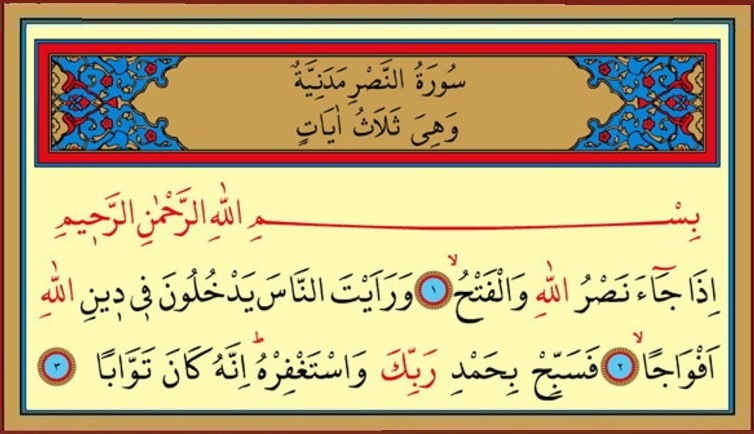 سُورَةُ النَّصْرِ مَدَنِيَّةٌ
وَهِىَ ثَلَاثُ اٰيَاتٍ
بِسْــــــــــــــــــمِ اللّٰهِ الرَّحْمٰنِ الرَّحٖيمِ
اِذَا جَٓاءَ نَصْرُ اللّٰهِ وَالْفَتْحُۙ ١ وَرَاَيْتَ النَّاسَ يَدْخُلُونَ فٖى دٖينِ اللّٰهِ
اَفْوَاجًاۙ ٢ فَسَبِّحْ بِحَمْدِ رَبِّكَ وَاسْتَغْفِرْهُۜ اِنَّهُ كَانَ تَوَّابًا ٣